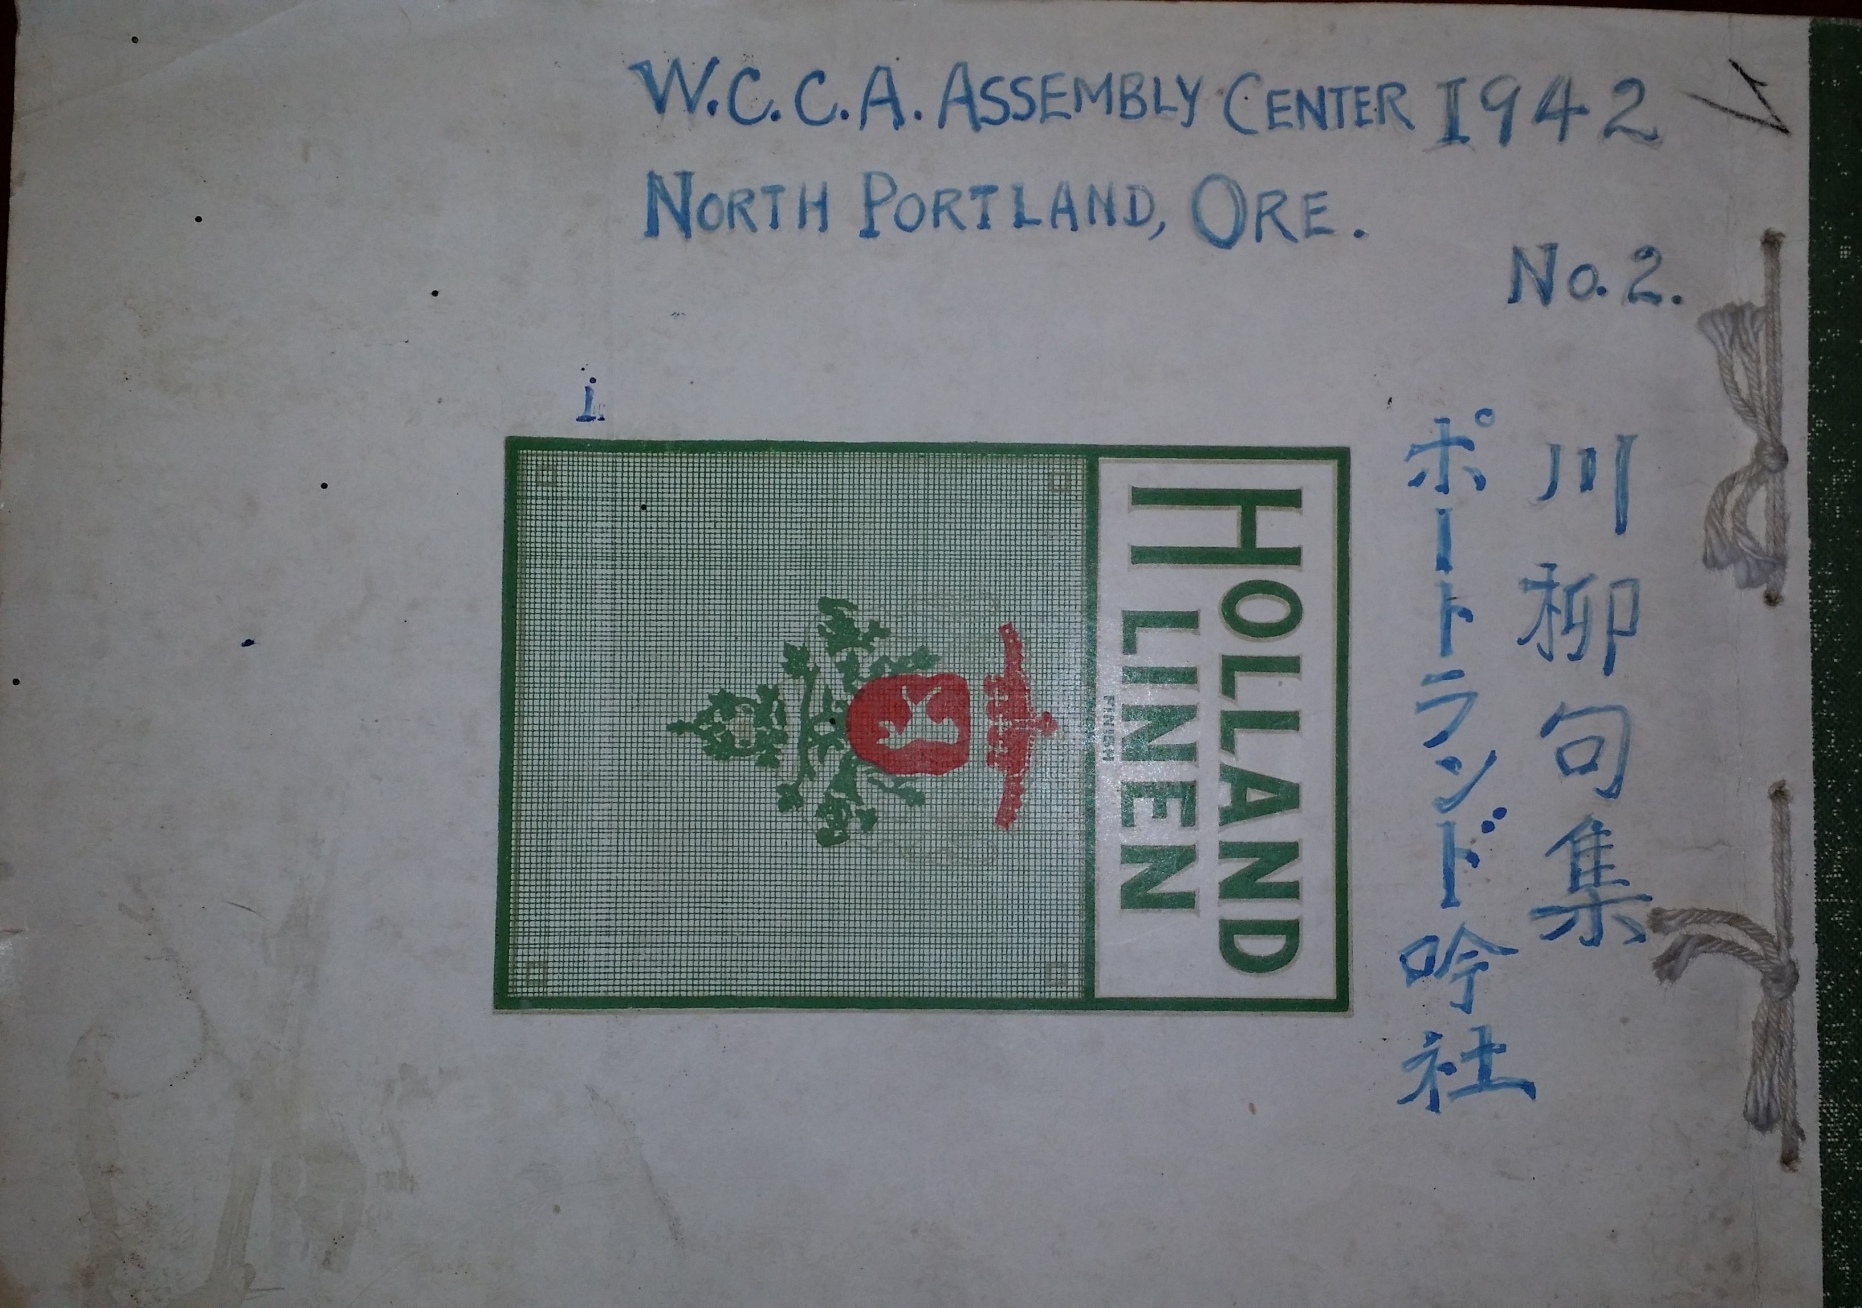 W.C.C.A. ASSEMBLY CENTER 1942
NORTH PORTLAND, ORE.
No. 2.
川柳句集
ポートランド吟社
i
HOLLAND
LINEN
FINISH